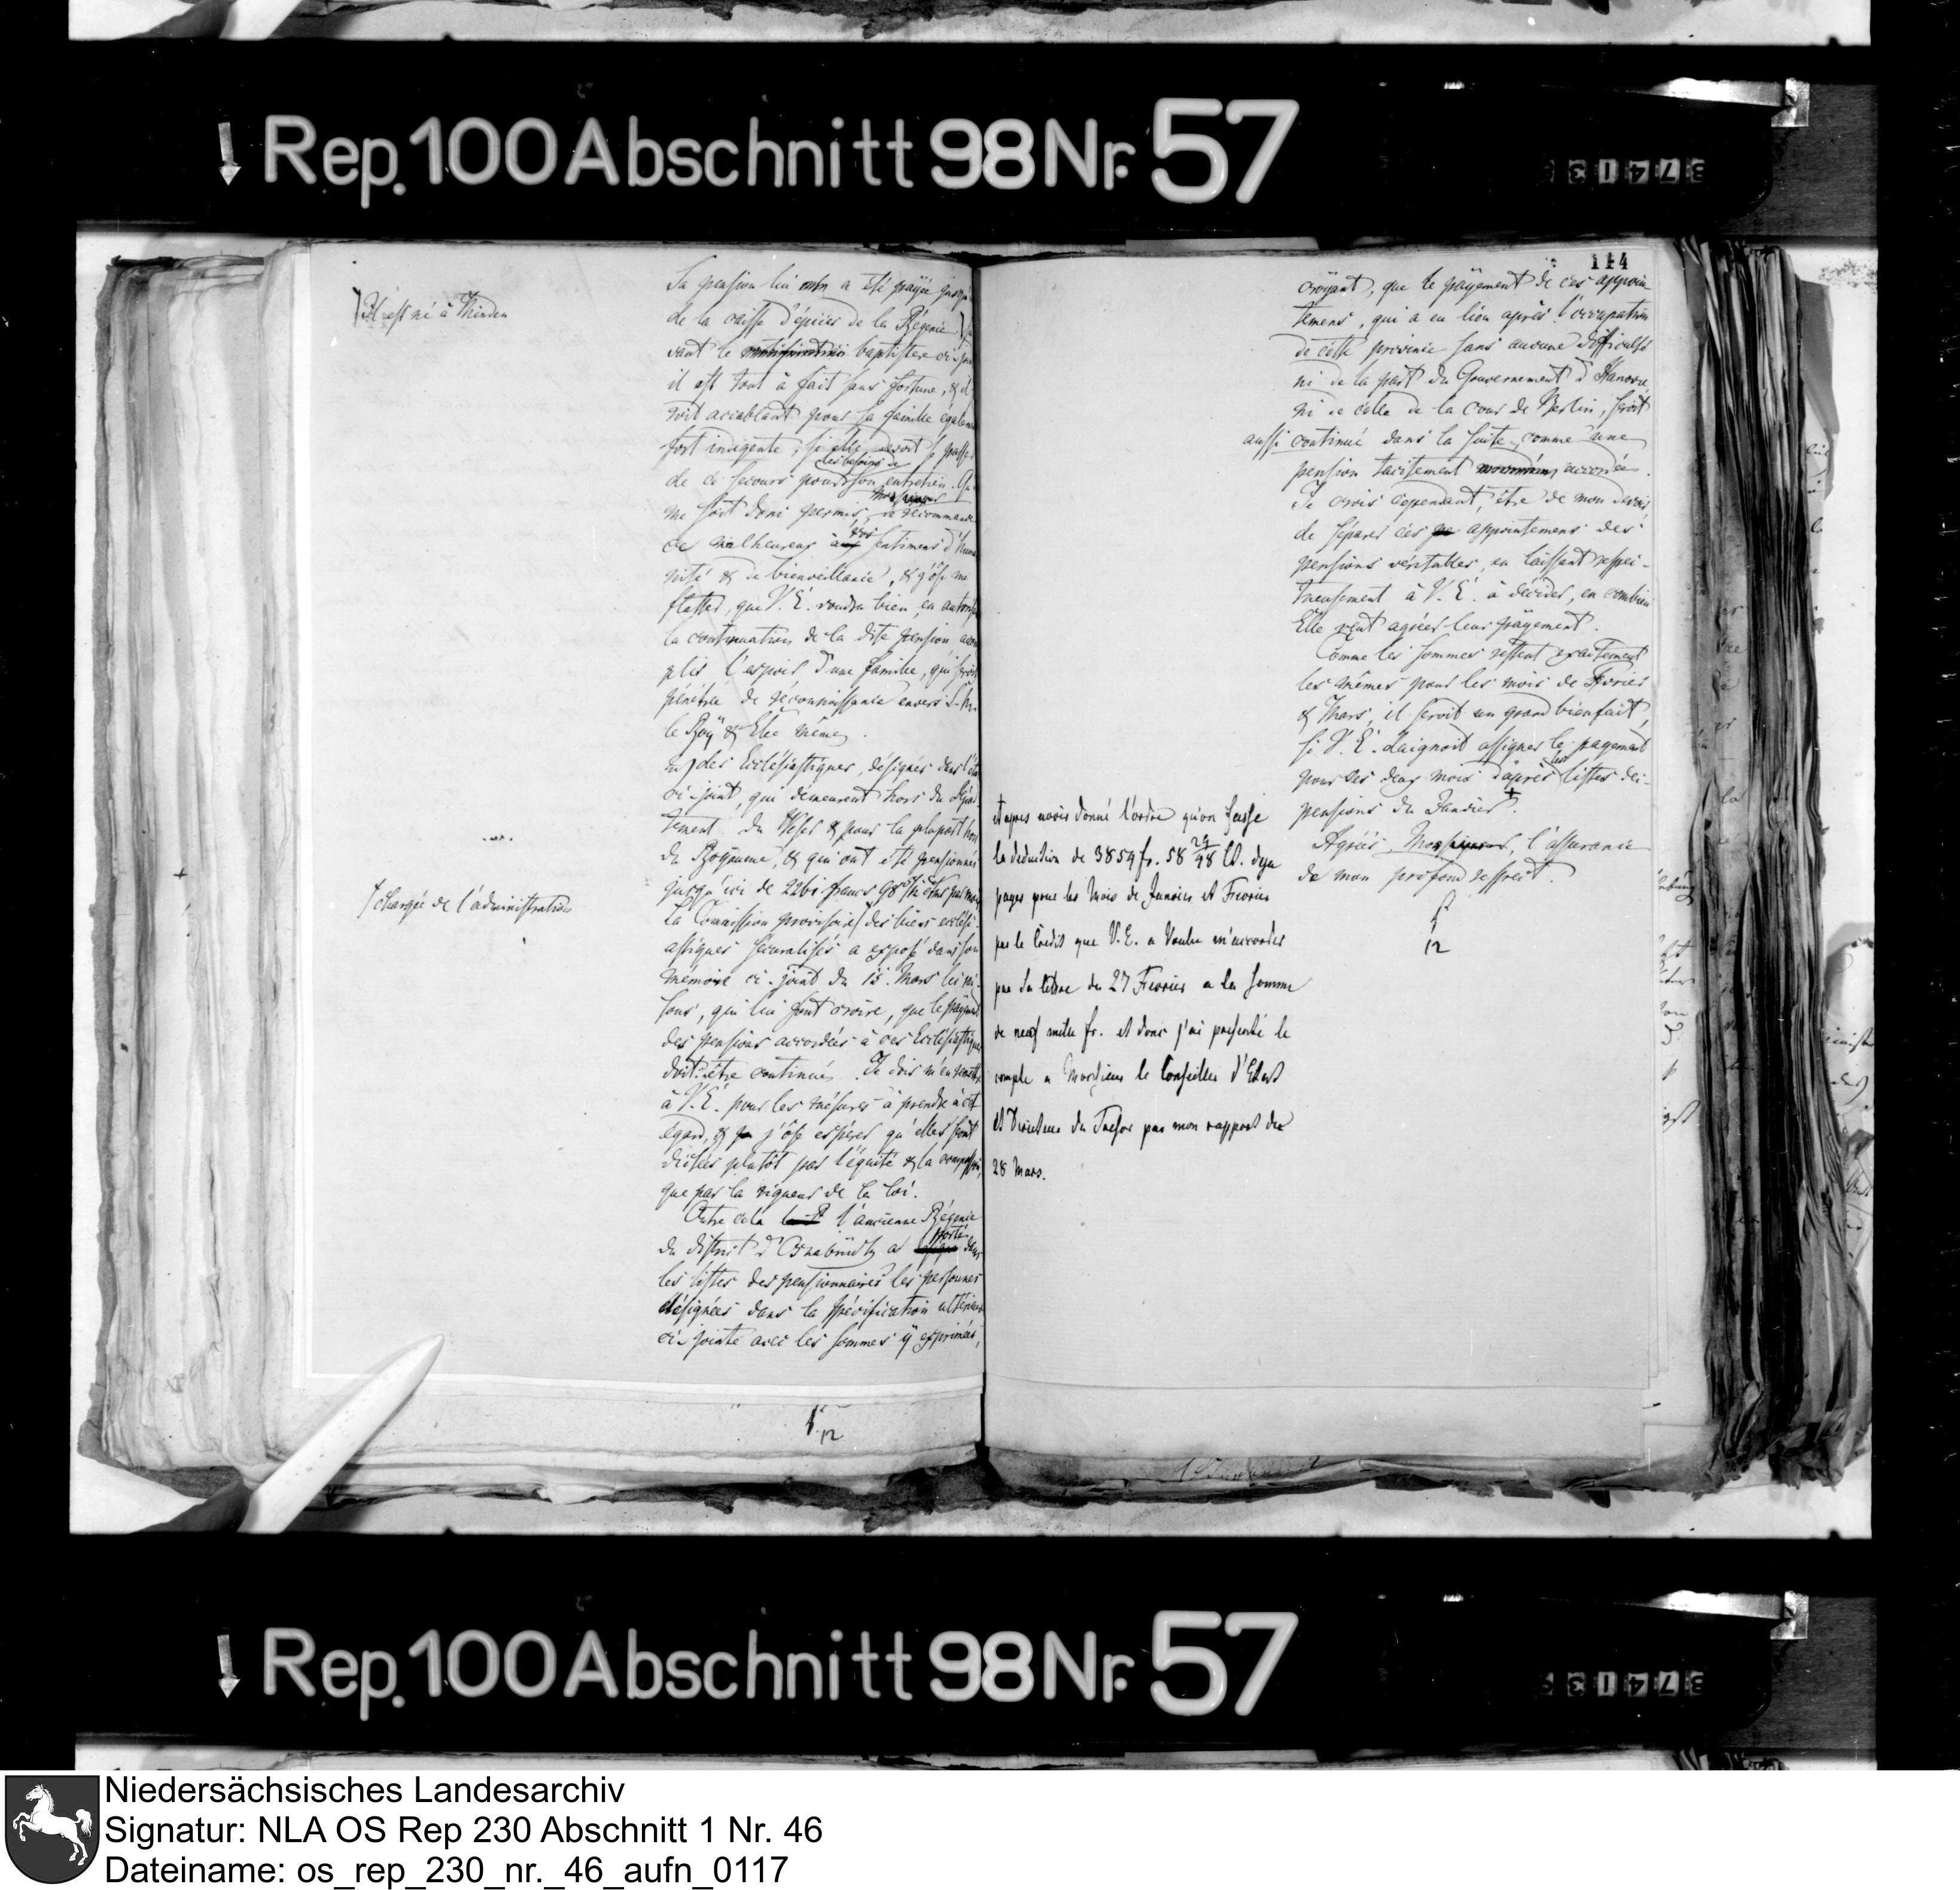 Rep. 100 Abschnitt 98 Nr. 57
) Il est né à Minden
Sa pension lui a été payée jusqu'
de la caisse d'épices de la Régence
vant le baptistere ci-join
il est tout à fait sans fortune, & il
roit accablant pour sa famille égaleme
fort indigente, si elle devoit se passer
de ce secours pour les besoins de son entretien. Qu
me soit donc permis, Monseigneur de recommande
ce malheureux à vos sentimens d'huma
nité & de bienveillance, & j'ôse me
flatter, que V. E. voudra bien en autorise
la continuation de la dite pension accom
plir l'espoir d'une famille, qui seroit
pénétrée de reconnaissance envers S. M.
le Roÿ & Elle même.
) des Ecclésiastiques, désignés dans l'éta
ci-joint, qui demeurent hors du Dépar
tement du Weser & pour la plupart hors
du Royaume, & qui ont été pensionnés
jusqu'ici de francs par mois
† chargée de l'administration
La Commission provisoire des biens ecclési-
astiques sécularisés a exposé dans son
mémoire ci-joint du 15. Mars les rai-
sons, qui lui font croire, que le payement
des pensions accordées à ces Ecclésiastiques
doit être continué. Je dois m'en remettre
à V. E. pour les mésures à prendre à cet
égard, & j'ôse espérer qu'elles seront
dictées plutôt par l'équité & la compassion,
que par la rigueur de la loi.
Outre cela l'ancienne Régence
du district d'Osnabrück a porté dans
les listes des pensionnaires les personnes
désignées dans la spécification ultérieure
ci-jointe avec les sommes ÿ exprimées,
12
114
croÿant, que le païement de ces appoin
temens, qui a eu lieu après l'occupation
de cette province sans aucune difficulté
ni de la part du Gouvernement d'Hanovre
ni de celle de la cour de Berlin, seroit
aussi continué dans la suite comme une
pension tacitement accordée.
Je crois cependant, être de mon devoir
de séparer ces appointemens des
pensions véritables, en laissant respec-
tueusement à V. E. à décider, en combien
Elle veut agréer leur païement.
Comme les sommes restent exactement
les mêmes pour les mois de Fevrier
& Mars, il seroit un grand bienfait,
si V. E. daignoit assigner le payement
pour ces deux mois d'après les listes des
pensions du Janvier †.
Agréez, Monseigneur, l'assurance
de mon profond respect.
12
et apres avoir donné l'ordre qu'on fasse
la deduction de 3854 fr. 58 27/48 Ct. deja
payes pour les Mois de Janvier et Fevrier
par le Credit que V. E. a Voulu m'accorder
par Sa lettre du 27 Fevrier a la Somme
de neuf mille fr. et dont j'ai presenté le
compte a Monsieur le Conseiller d'Etat
et Directeur du Tresor par mon rapport du
28 Mars.
Rep. 100 Abschnitt 98 Nr. 57
Niedersächsisches Landesarchiv
Signatur: NLA OS Rep 230 Abschnitt 1 Nr. 46
Dateiname: os_rep_230_nr._46_aufn_0117